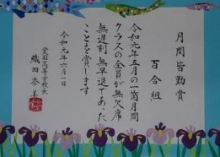 月間皆勤賞
百合組
令和元年五月の一箇月間
クラスの全員が無欠席
無遅刻無早退であった
ことを賞します
令和元年六月一日